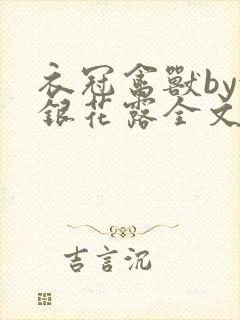 衣冠禽獸by
銀花露全文
吉言沉